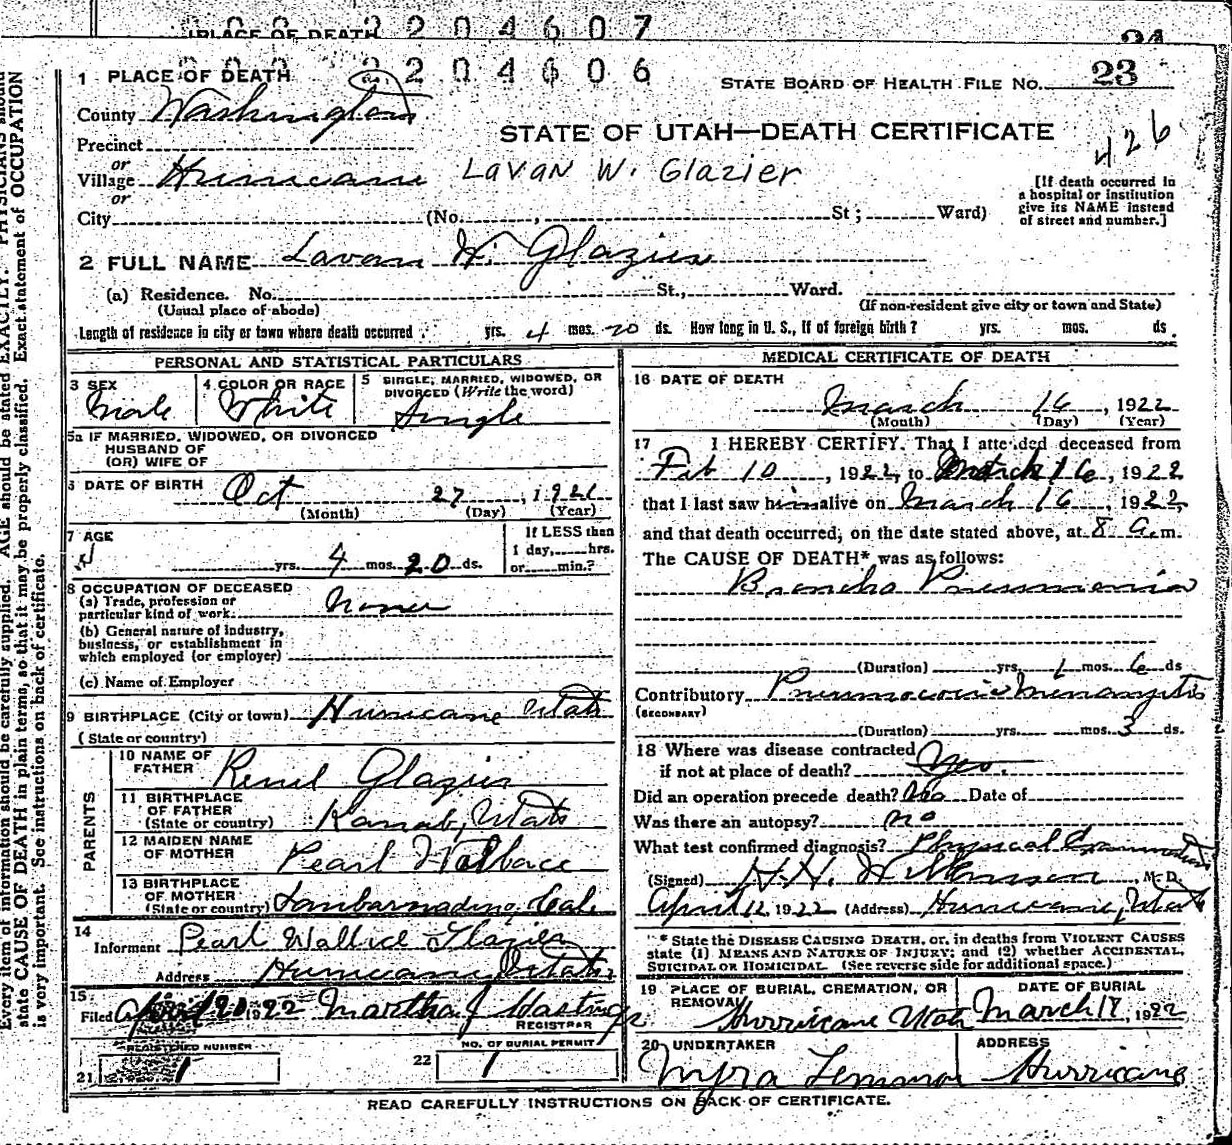 PLACE OF DEATH 2204607
24
2204606
1 PLACE OF DEATH
STATE BOARD OF HEALTH FILE NO. 23
County Washington
STATE OF UTAH—DEATH CERTIFICATE
426
Precinct
or
Village Hurricane LaVAN W. Glazier
or
City (No. , St; Ward)
[If death occurred in
a hospital or institution
give its NAME instead
of street and number.]
2 FULL NAME Lavan W. Glazier
(a) Residence. No. St., Ward.
(Usual place of abode) (If non-resident give city or town and State)
Length of residence in city or town where death occurred yrs. 4 mos. 20 ds. How long in U. S., if of foreign birth? yrs. mos. ds.
PERSONAL AND STATISTICAL PARTICULARS
3 SEX Male
4 COLOR OR RACE White
5 SINGLE, MARRIED, WIDOWED, OR
DIVORCED (Write the word)
Single
5a IF MARRIED, WIDOWED, OR DIVORCED
HUSBAND OF
(OR) WIFE OF
6 DATE OF BIRTH Oct 27, 1921
(Month) (Day) (Year)
7 AGE
yrs. 4 mos. 20 ds.
If LESS than
1 day, hrs.
or min.?
8 OCCUPATION OF DECEASED
(a) Trade, profession or
particular kind of work None
(b) General nature of industry,
business, or establishment in
which employed (or employer)
(c) Name of Employer
9 BIRTHPLACE (City or town) Hurricane Utah
(State or country)
PARENTS
10 NAME OF
FATHER Glazier
11 BIRTHPLACE
OF FATHER
(State or country) Kanab, Utah
12 MAIDEN NAME
OF MOTHER Pearl Wallace
13 BIRTHPLACE
OF MOTHER
(State or country) Cal
14
Informant Pearl Wallice Glazier
Address Hurricane, Utah
15
Filed April 20 1922 Martha J Hastings
REGISTRAR
REGISTERED NUMBER
21 1
NO. OF BURIAL PERMIT
22 1
MEDICAL CERTIFICATE OF DEATH
16 DATE OF DEATH
March 16, 1922
(Month) (Day) (Year)
17 I HEREBY CERTIFY, That I attended deceased from
Feb 10, 1922, to March 16, 1922
that I last saw him alive on March 16, 1922,
and that death occurred, on the date stated above, at 8 a.m.
The CAUSE OF DEATH* was as follows:
Broncho Pneumonia
(Duration) yrs. 1 mos. 6 ds
Contributory Pneumococcic Menangitis
(SECONDARY)
(Duration) yrs. mos. 3 ds.
18 Where was disease contracted
if not at place of death? Yes.
Did an operation precede death? No Date of
Was there an autopsy? no
What test confirmed diagnosis? Physical Examination
(Signed) M. D.
April 12 1922 (Address) Hurricane, Utah
* State the DISEASE CAUSING DEATH, or, in deaths from VIOLENT CAUSES
state (1) MEANS AND NATURE OF INJURY; and (2) whether ACCIDENTAL,
SUICIDAL OR HOMICIDAL. (See reverse side for additional space.)
19 PLACE OF BURIAL, CREMATION, OR
REMOVAL
Hurricane Utah
DATE OF BURIAL
March 17, 1922
20 UNDERTAKER
ADDRESS
Hurricane
READ CAREFULLY INSTRUCTIONS ON BACK OF CERTIFICATE.
Every item of information should be carefully supplied. AGE should be stated EXACTLY. PHYSICIANS should
state CAUSE OF DEATH in plain terms, so that it may be properly classified. Exact statement of OCCUPATION
is very important. See instructions on back of certificate.